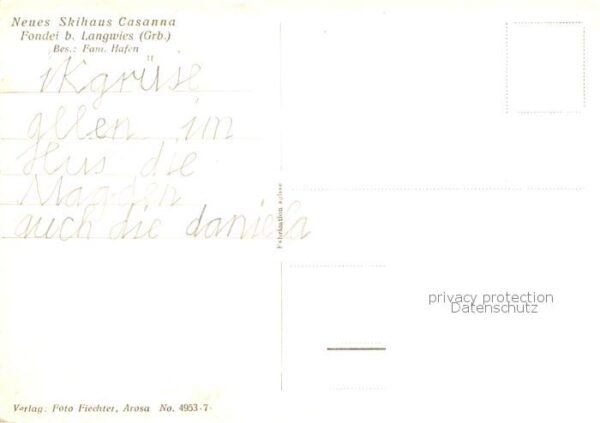 Neues Skihaus Casanna
Fondei b. Langwies (Grb.)
Bes.: Fam. Hafen
ik grüse
allen im
Hus die
Magden
auch die daniela
Fabrication suisse
privacy protection
Datenschutz
Verlag: Foto Fiechter, Arosa No. 4953-7-